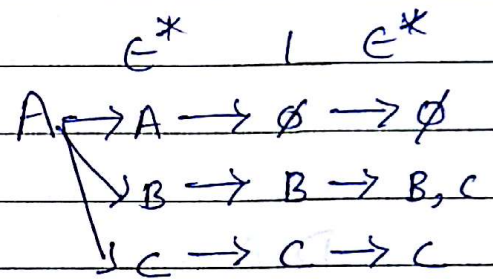 ϵ* 1 ϵ*
A → A → ϕ → ϕ
B → B → B, C
C → C → C